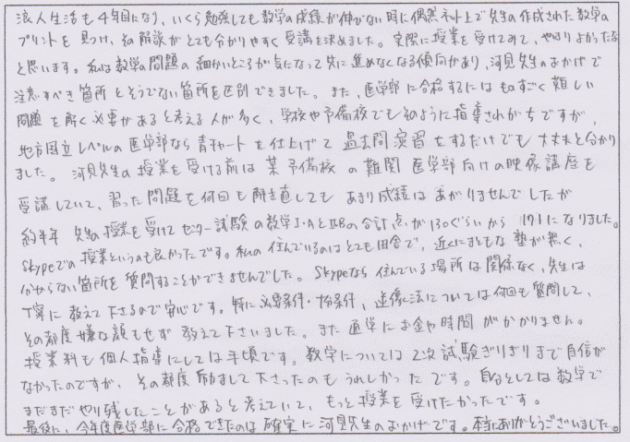 浪人生活も4年目になり、いくら勉強しても数学の成績が伸びない時に偶然ネット上で先生の作成された数学の
プリントを見つけ、その解説がとても分かりやすく受講を決めました。実際に授業を受けてみて、やはりよかったな
と思います。私は数学の問題の細かいところが気になって先に進めなくなる傾向があり、河見先生のおかげで
注意すべき箇所とそうでない箇所を区別できました。また、医学部に合格するにはものすごく難しい
問題を解く必要があると考える人が多く、学校や予備校でもそのように指導されがちですが、
地方国立レベルの医学部なら青チャートを仕上げて過去問演習をするだけでも大丈夫と分かり
ました。河見先生の授業を受ける前は某予備校の難関医学部向けの映像講座を
受講していて、習った問題を何回も解き直してもあまり成績はあがりませんでしたが
約半年 先生の授業を受けてセンター試験の数学ⅠAとⅡBの合計点が130ぐらいから171になりました。
Skypeでの授業というのも良かったです。私の住んでいるのはとても田舎で、近くにまともな塾が無く、
分からない箇所を質問することができませんでした。Skypeなら住んでいる場所は関係なく、先生は
丁寧に教えて下さるので安心です。特に必要条件・十分条件、逆像法については何回も質問して、
その都度嫌な顔もせず教えて下さいました。また通学にお金や時間がかかりません。
授業料も個人指導にしては手頃です。数学については2次試験ぎりぎりまで自信が
なかったのですが、その都度励まして下さったのもうれしかったです。自分としては数学で
まだまだやり残したことがあると考えていて、もっと授業を受けたかったです。
最後に、今年度医学部に合格できたのは確実に河見先生のおかげです。本当にありがとうございました。